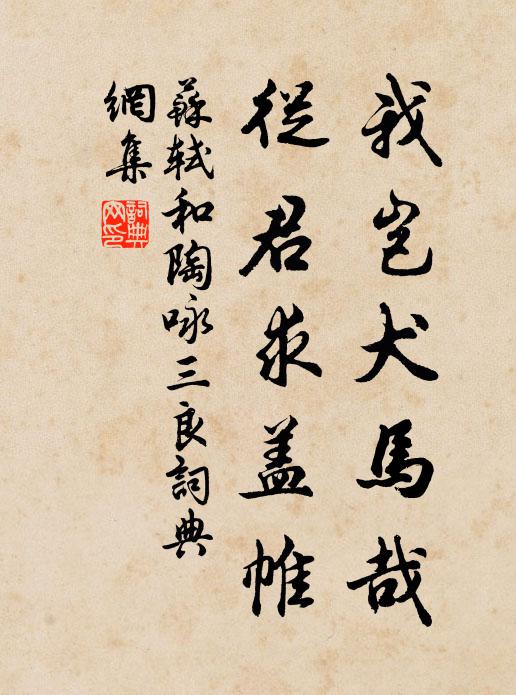 我岂犬馬哉
從君求盖帷
蘇軾和陶咏三良詞典
網集
詞典
网印